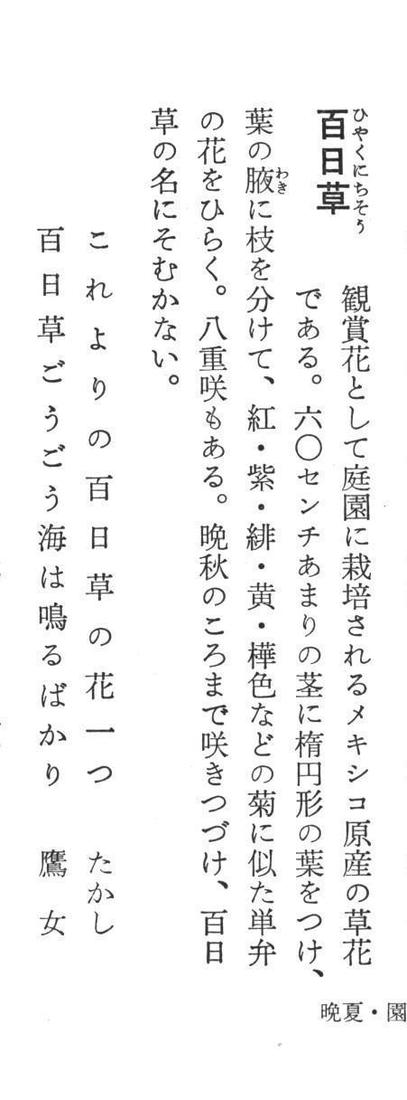 百日草
ひやくにちそう
観賞花として庭園に栽培されるメキシコ原産の草花
である。六〇センチあまりの茎に楕円形の葉をつけ、
葉の腋に枝を分けて、紅・紫・緋・黄・樺色などの菊に似た単弁
わき
の花をひらく。八重咲もある。晩秋のころまで咲きつづけ、百日
草の名にそむかない。
これよりの百日草の花一つ　たかし
百日草ごうごう海は鳴るばかり　鷹女
晩夏・園